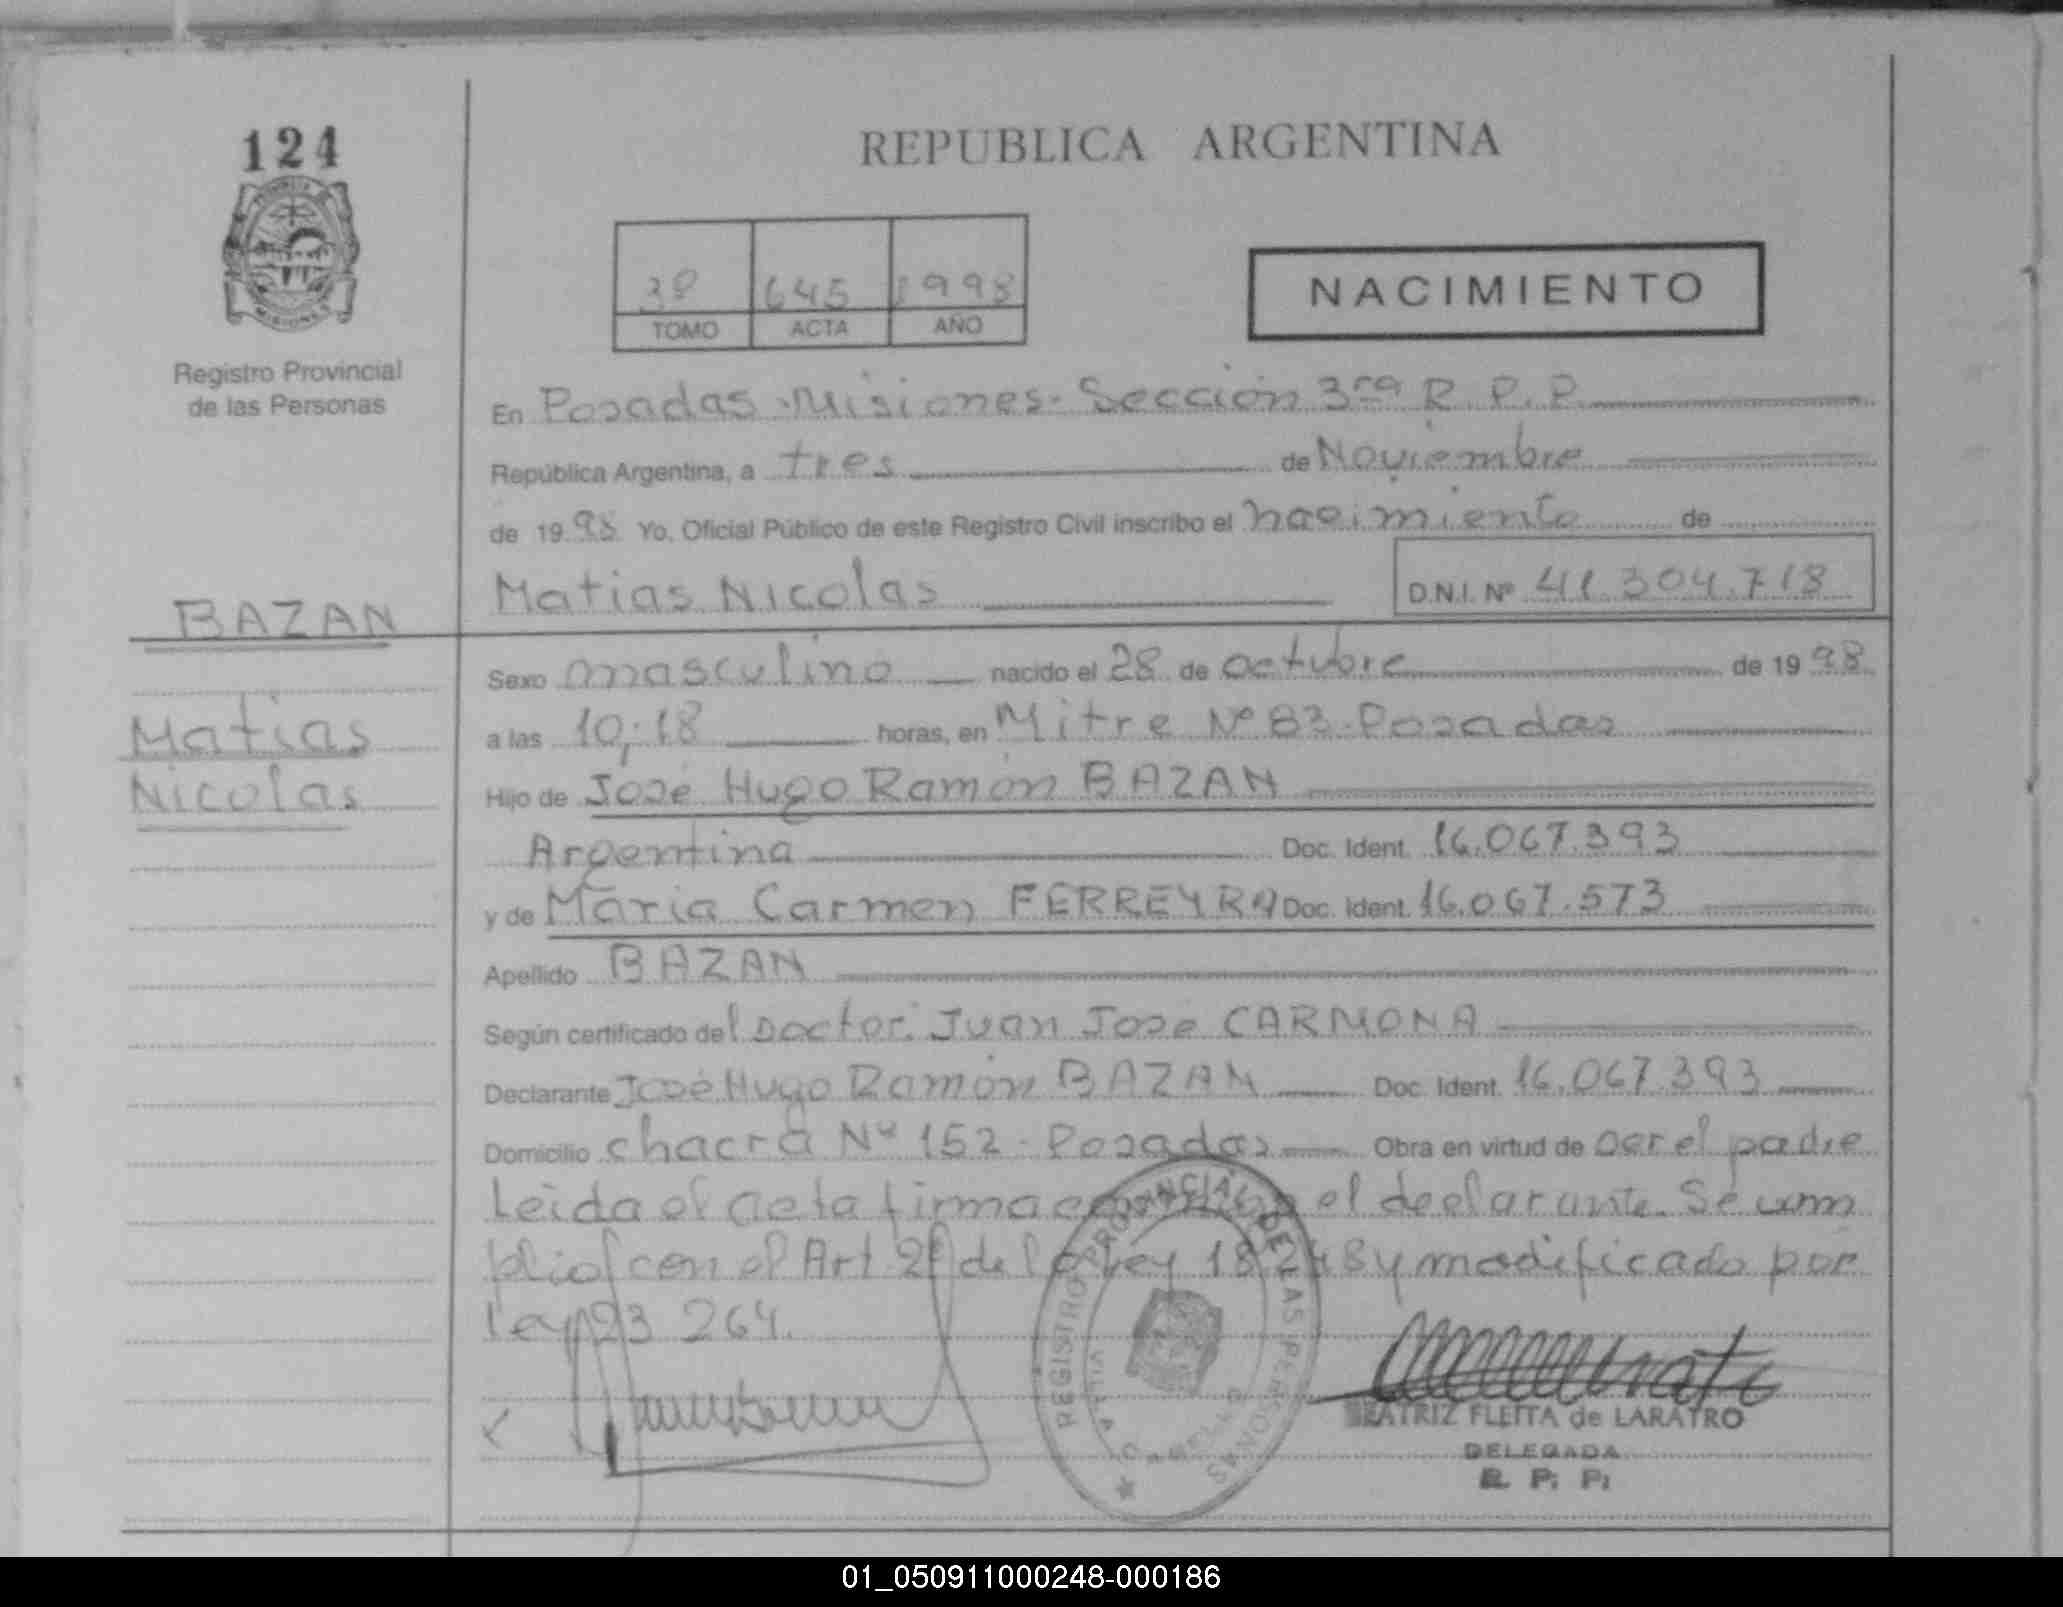 124
PROVINCIA
MISIONES
Registro Provincial
de las Personas
REPUBLICA ARGENTINA
3º 645 1998
TOMO ACTA AÑO
NACIMIENTO
En Posadas - Misiones - Sección 3ra R. P. P.
República Argentina, a tres de Noviembre
de 1998 Yo, Oficial Público de este Registro Civil inscribo el nacimiento de
Matias Nicolas D.N.I. Nº 41.304.718
BAZAN
Matias
Nicolas
Sexo masculino nacido el 28 de octubre de 1998
a las 10,18 horas, en Mitre Nº 83 - Posadas
Hijo de José Hugo Ramón BAZAN
Argentina Doc. Ident. 16.067.393
y de Maria Carmen FERREYRA Doc. Ident. 16.067.573
Apellido BAZAN
Según certificado del Doctor: Juan Jose CARMONA
Declarante José Hugo Ramón BAZAN Doc. Ident. 16.067.393
Domicilio chacra Nº 152 - Posadas Obra en virtud de ser el padre
Leida el acta firma el declarante. Se cum
plio con el Art. 2º de la Ley 18.248 y modificado por
ley 23 264.
REGISTRO PROVINCIAL DE LAS PERSONAS
VILLA CABELLO
BEATRIZ FLEITA de LARATRO
DELEGADA
R. P. P.
01_050911000248-000186